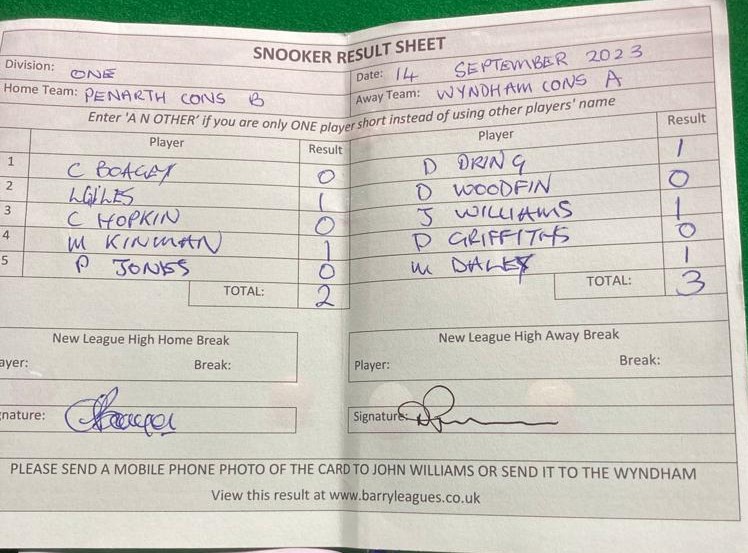 SNOOKER RESULT SHEET
Division: ONE Date: 14 SEPTEMBER 2023
Home Team: PENARTH CONS B Away Team: WYNDHAM CONS A
Enter 'A N OTHER' if you are only ONE player short instead of using other players' name
Player Result Player Result
1 C BOAGEY 0 D DRING 1
2 L GILES 1 D WOODFIN 0
3 C HOPKIN 0 J WILLIAMS 1
4 M KINMAN 1 D GRIFFITHS 0
5 P JONES 0 M DALEY 1
TOTAL: 2 TOTAL: 3
New League High Home Break New League High Away Break
ayer: Break: Player: Break:
gnature: Signature:
PLEASE SEND A MOBILE PHONE PHOTO OF THE CARD TO JOHN WILLIAMS OR SEND IT TO THE WYNDHAM
View this result at www.barryleagues.co.uk